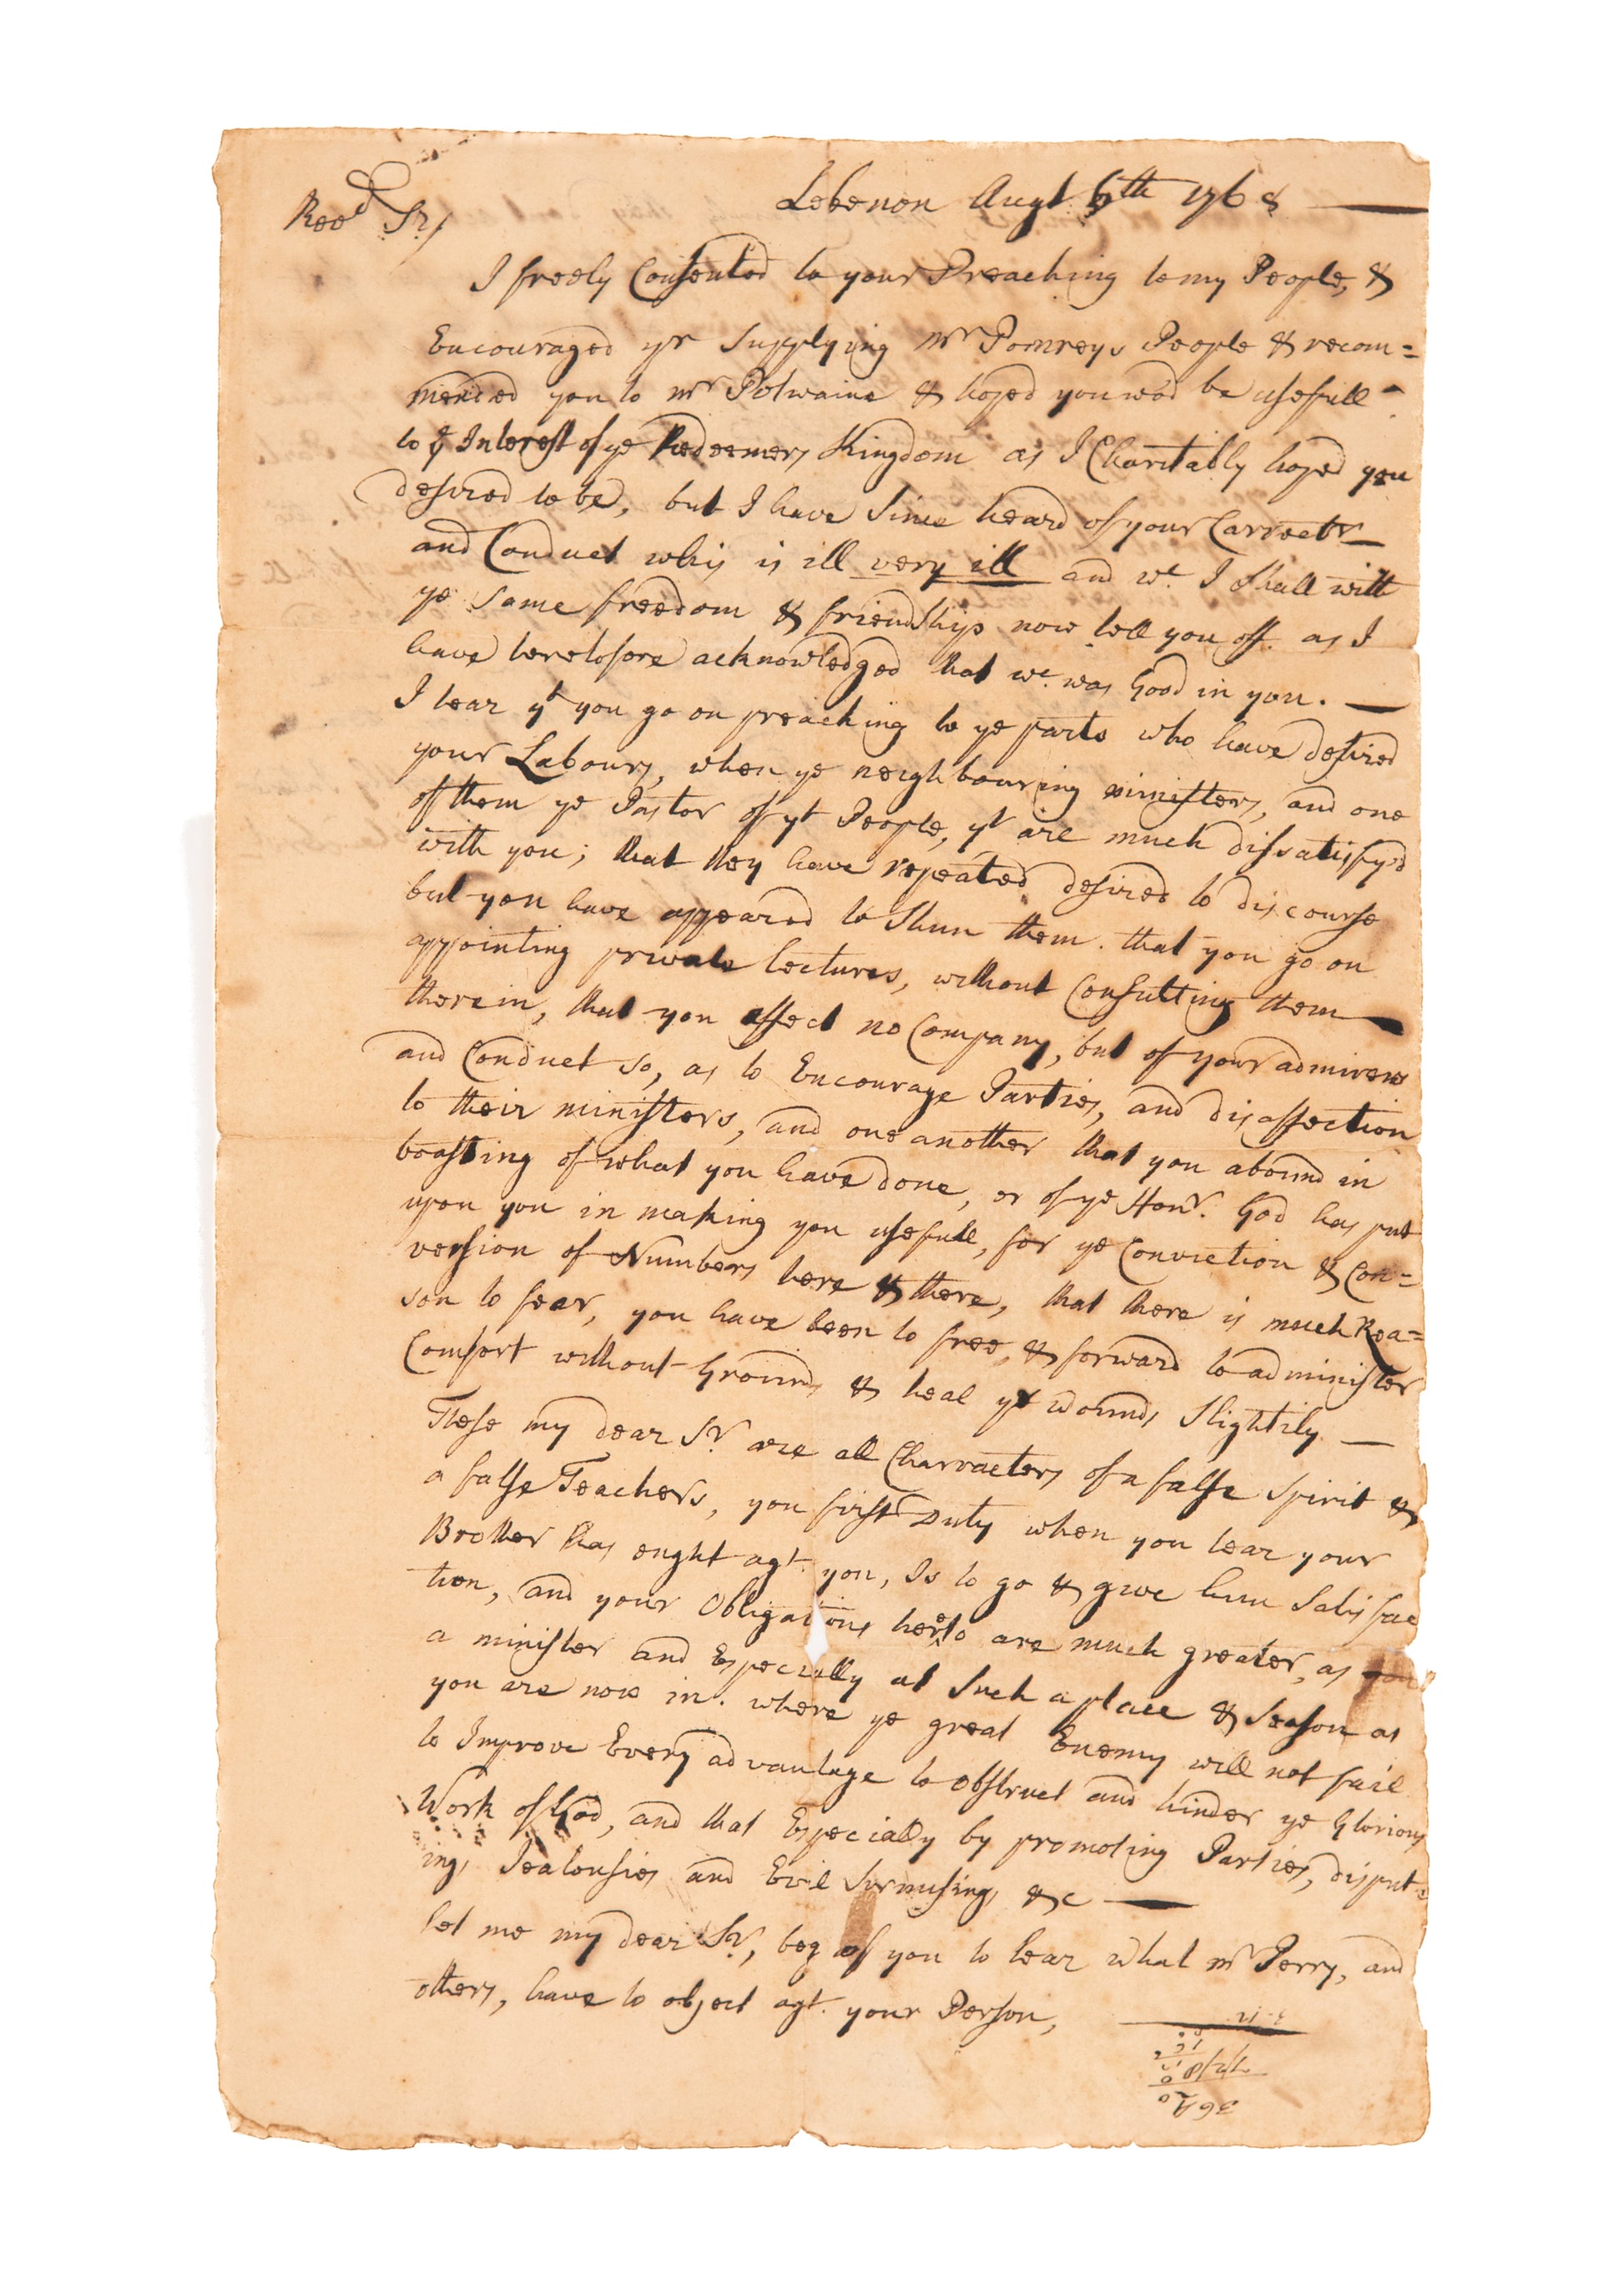 Lebenon Augt. 6th 1768
Revd Sr,
I freely Consented to your Preaching to my People, &
Encouraged yr Supplying Mr Pomreys People & recom=
mended you to Mr Potwaine & hoped you wod be usefull
to ye Interest of ye Redeemers Kingdom as I Charitably hoped you
desired to be, but I have Since heard of your Carrectr
and Conduct whis is ill very ill and wc. I Shall with
ye same freedom & friendship now tell you off. as I
have heretofore acknowledged that wc. was Good in you.
I hear yt you go on preaching to ye parts who have desired
your Labours, when ye neighbouring ministers, and one
of them ye Pastor of yt People, yt are much dissatisfy'd
with you; that they have repeated desired to discourse
but you have appeared to Shun them. that you go on
appointing private lectures, without Consulting them
therein, that you affect no Company, but of your admirers
and Conduct so, as to Encourage Parties, and disaffection
to their ministers, and one another that you abound in
boasting of what you have done, or of ye Honr. God has put
upon you in making you usefull, for ye Conviction & Con=
version of Numbers here & there, that there is much Rea=
son to fear, you have been to free, & forward to administer
Comfort without Grounds & heal ye wounds Slightily
These my dear Sr. are all Charracters of a false Spirit &
a false Teachers, you first Duty when you hear your
Brother has ought agt. you, Is to go & give him Satisfac
tion, and your Obligations hereto are much greater, as you
a minister and Especially at Such a place & Season as
you are now in. where ye great Enemy will not fail
to Improve Every advantage to obstruct and hinder ye Glorious
Work of God, and that Especially by promoting Parties, disput=
ings Jealousies and Evil Surmusings &c
let me my dear Sr, beg of you to hear what Mr Perry, and
others, have to object agt. your Person,